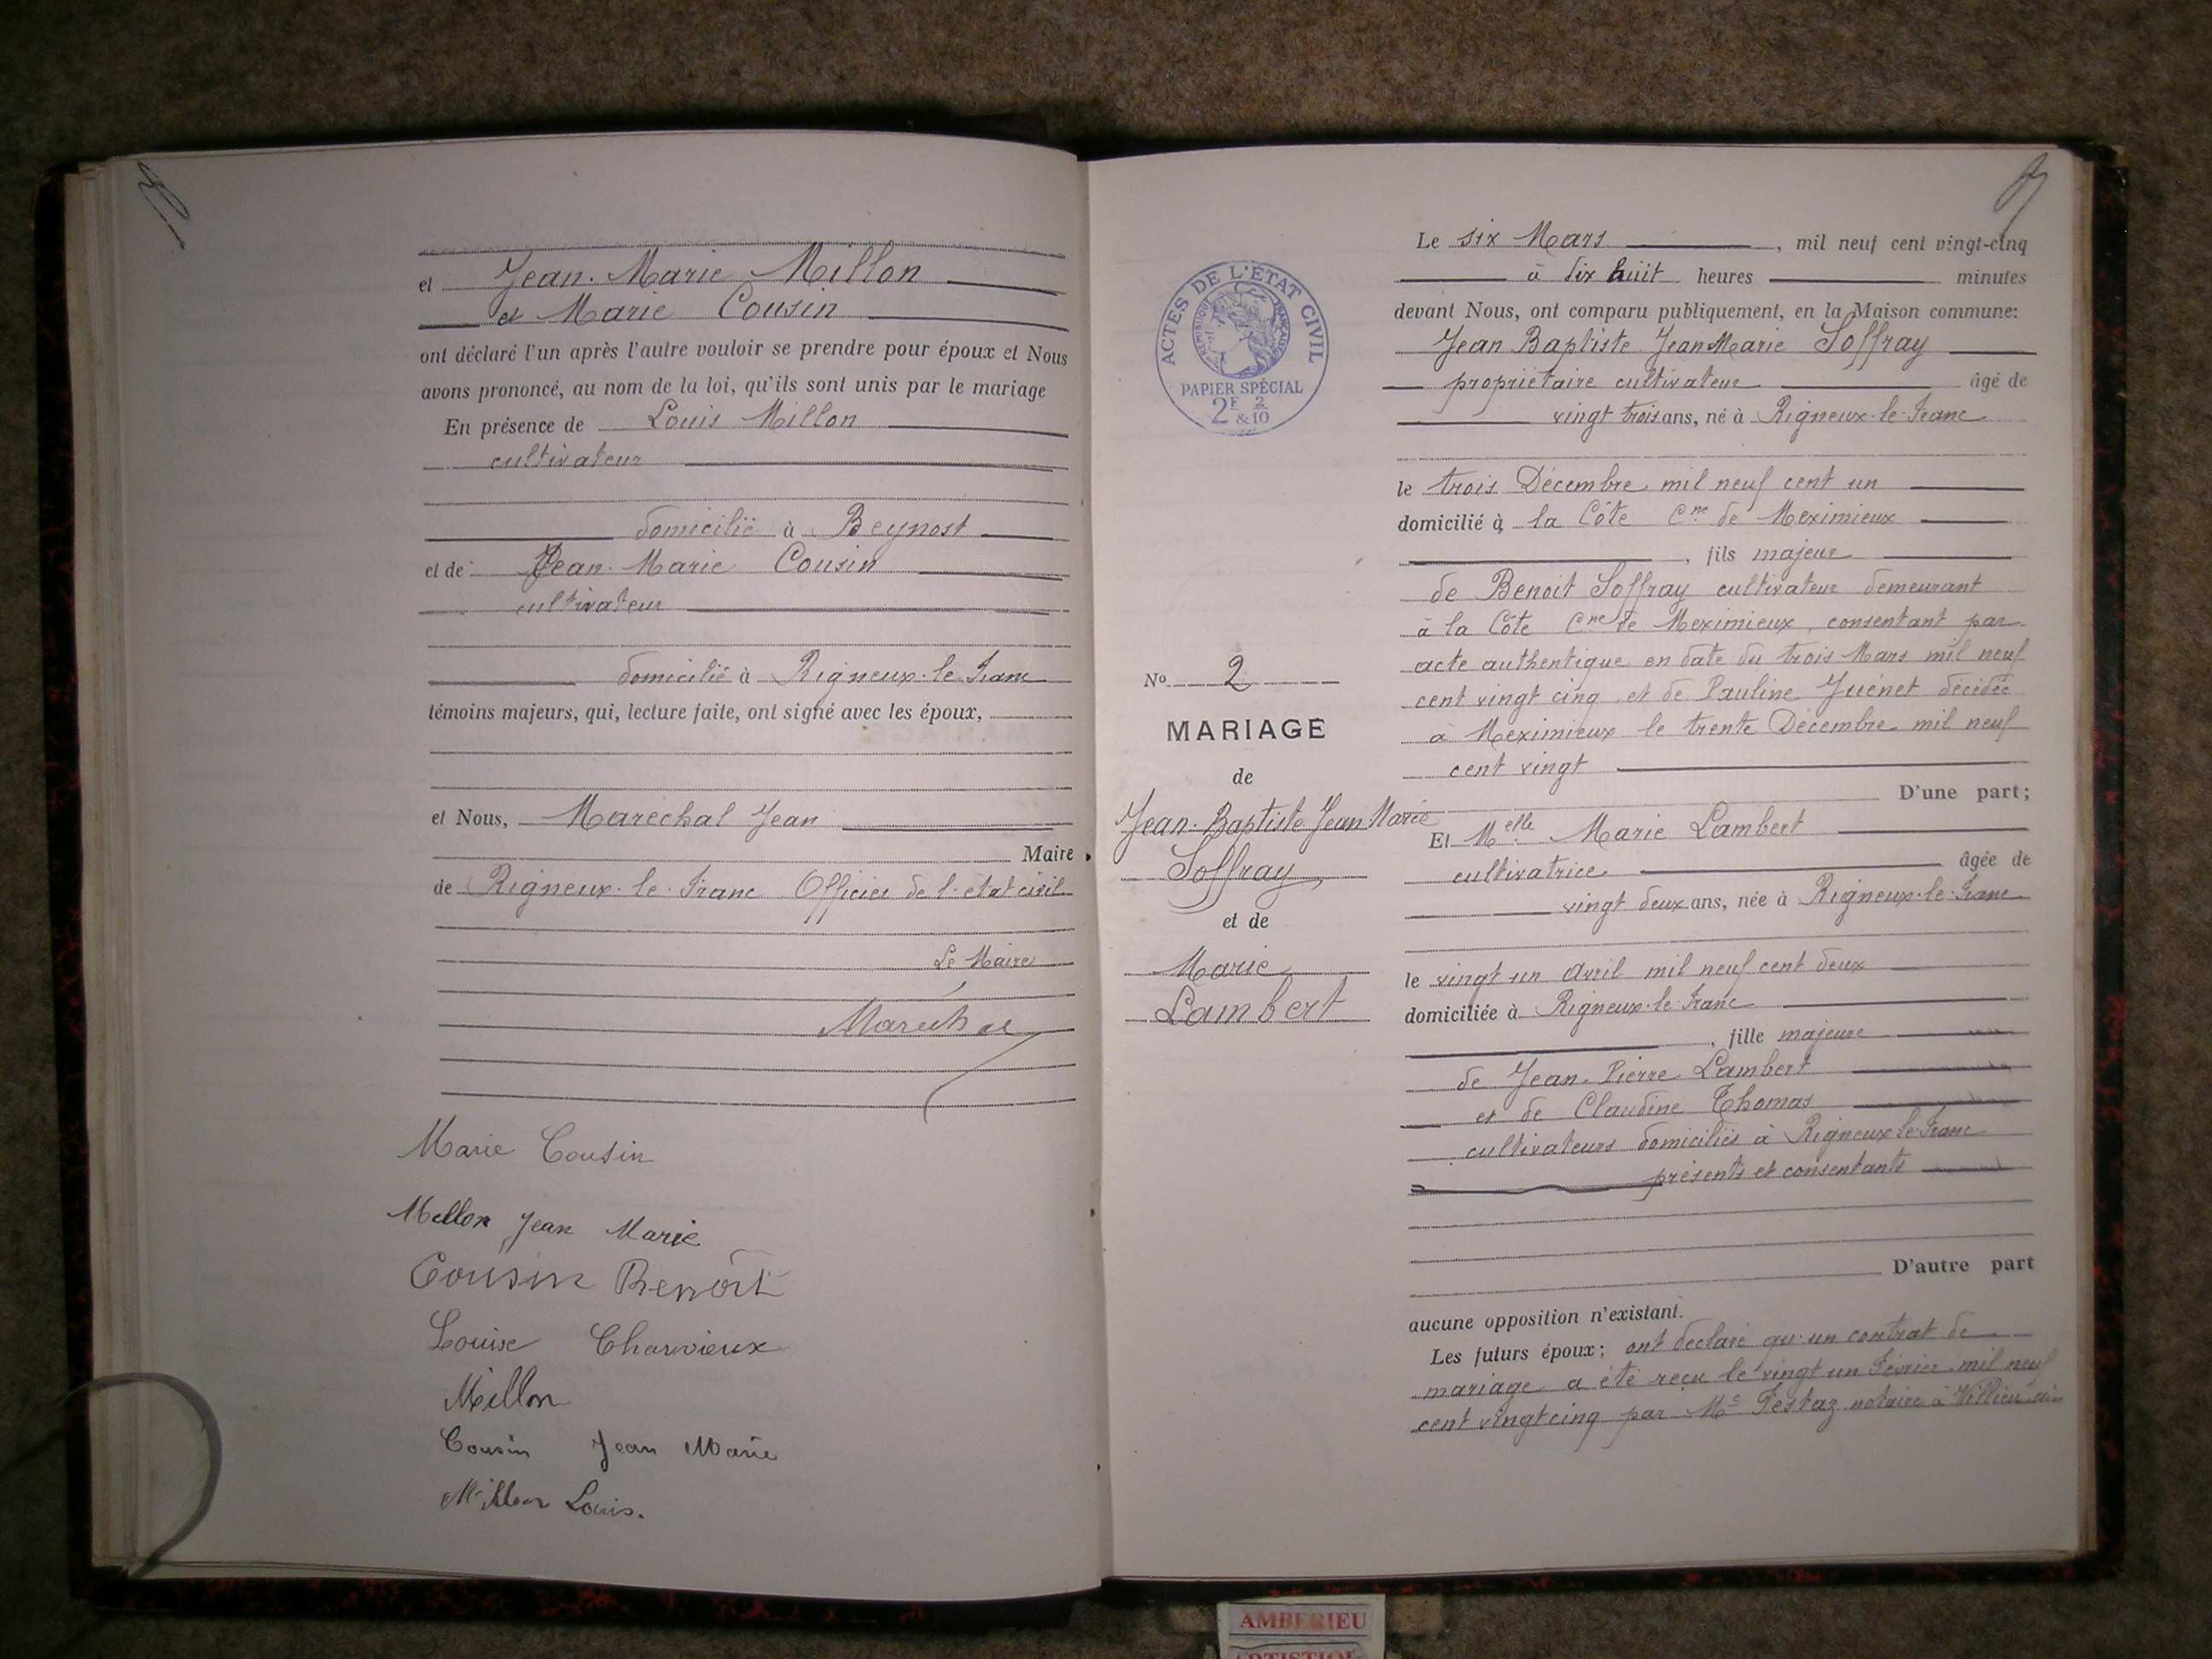 et Jean-Marie Millon
et Marie Cousin
ont déclaré l'un après l'autre vouloir se prendre pour époux et Nous
avons prononcé, au nom de la loi, qu'ils sont unis par le mariage
En présence de Louis Millon
cultivateur
domicilié à Beynost
et de Jean-Marie Cousin
cultivateur
domicilié à Rigneux-le-Franc
témoins majeurs, qui, lecture faite, ont signé avec les époux,
et Nous, Maréchal Jean
Maire
de Rigneux-le-Franc Officier de l'état civil
Le Maire
Maréchal
Marie Cousin
Millon Jean Marie
Cousin Benoît
Louise Charvieux
Millon
Cousin Jean Marie
Millon Louis.
ACTES DE L'ÉTAT CIVIL
RÉPUBLIQUE FRANÇAISE
PAPIER SPÉCIAL
2F & 2/10
No 2
MARIAGE
de
Jean-Baptiste Jean Marie
Soffray
et de
Marie
Lambert
Le six Mars, mil neuf cent vingt-cinq
à dix huit heures minutes
devant Nous, ont comparu publiquement, en la Maison commune:
Jean Baptiste Jean Marie Soffray
propriétaire cultivateur âgé de
vingt trois ans, né à Rigneux-le-Franc
le trois Décembre mil neuf cent un
domicilié à la Côte Cne de Meximieux
, fils majeur
de Benoit Soffray cultivateur demeurant
à la Côte Cne de Meximieux, consentant par
acte authentique en date du trois Mars mil neuf
cent vingt cinq et de Pauline Juénet décédée
à Meximieux le trente Décembre mil neuf
cent vingt
D'une part;
Et Melle Marie Lambert
cultivatrice âgée de
vingt deux ans, née à Rigneux-le-Franc
le vingt un Avril mil neuf cent deux
domiciliée à Rigneux-le-Franc
, fille majeure
de Jean-Pierre Lambert
et de Claudine Thomas
cultivateurs domiciliés à Rigneux-le-Franc
présents et consentants
D'autre part
aucune opposition n'existant.
Les futurs époux; ont déclaré qu'un contrat de
mariage a été reçu le vingt un Février mil neuf
cent vingt cinq par Me Festaz notaire à Villieu
AMBERIEU